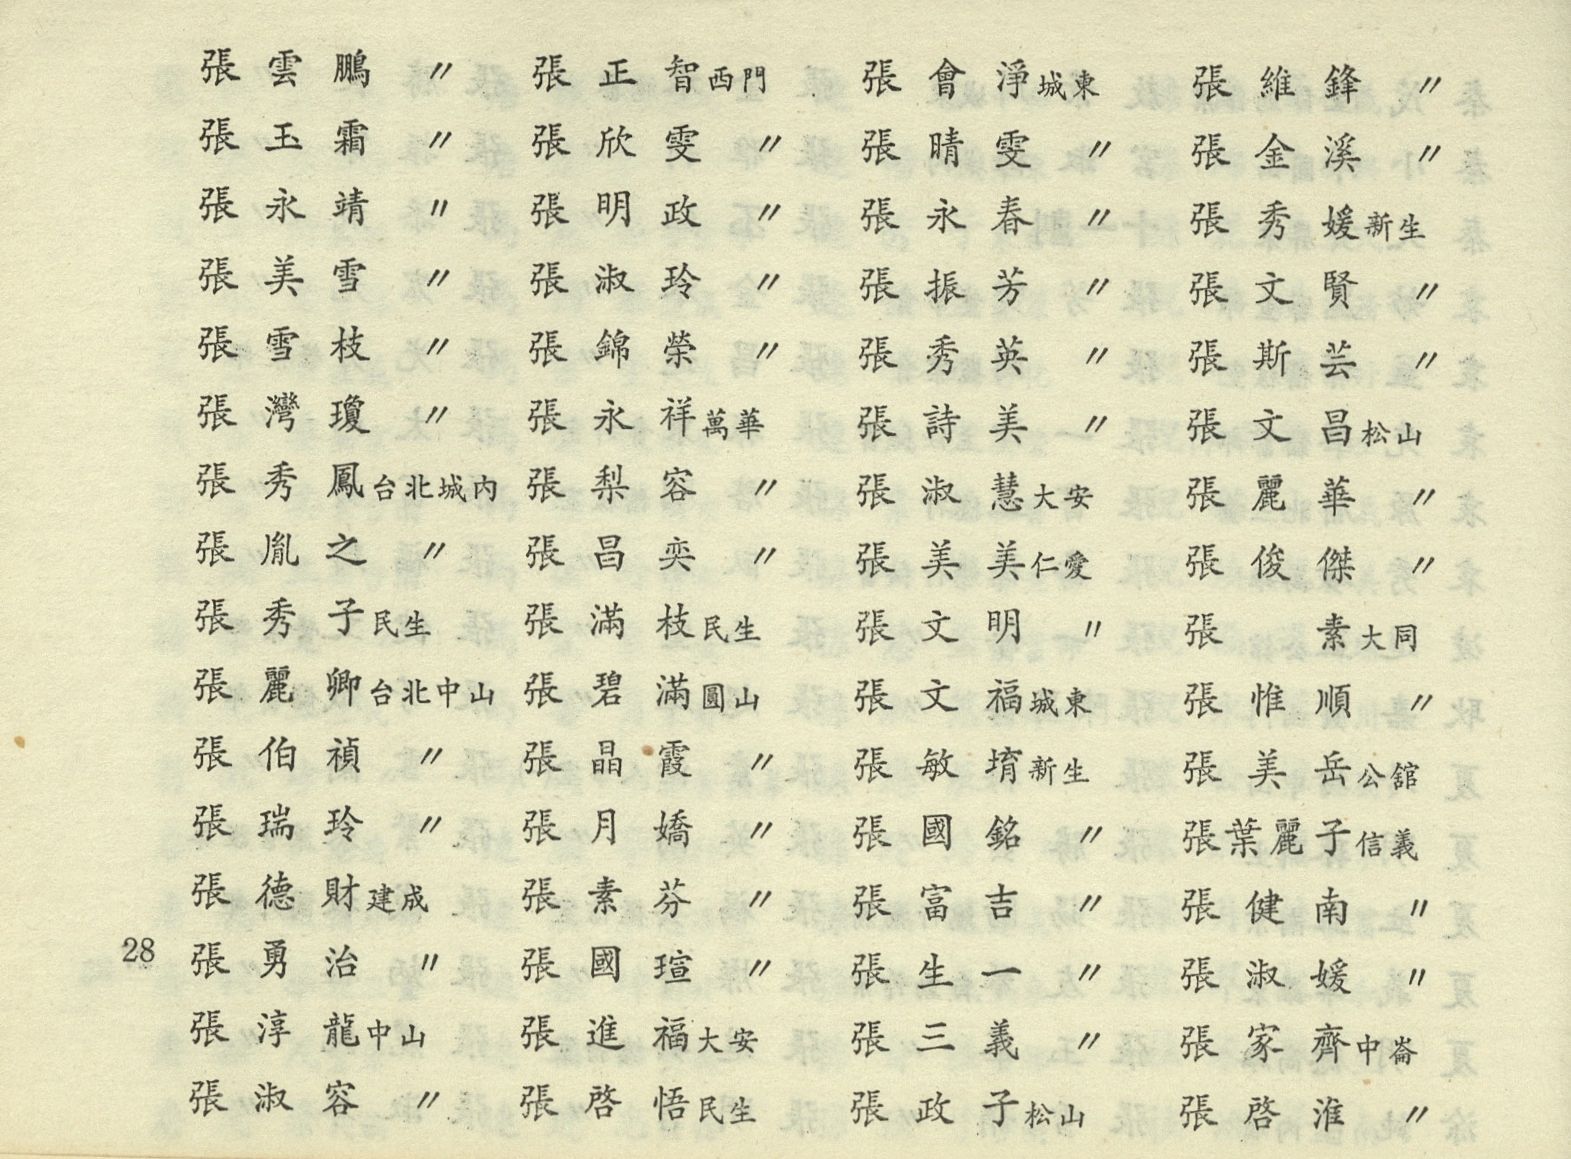 張雲鵬 〃 張正智西門 張會淨城東 張維鋒 〃
張玉霜 〃 張欣雯 〃 張晴雯 〃 張金溪 〃
張永靖 〃 張明政 〃 張永春 〃 張秀媛新生
張美雪 〃 張淑玲 〃 張振芳 〃 張文賢 〃
張雪枝 〃 張錦榮 〃 張秀英 〃 張斯芸 〃
張灣瓊 〃 張永祥萬華 張詩美 〃 張文昌松山
張秀鳳台北城內 張梨容 〃 張淑慧大安 張麗華 〃
張胤之 〃 張昌奕 〃 張美美仁愛 張俊傑 〃
張秀子民生 張滿枝民生 張文明 〃 張素大同
張麗卿台北中山 張碧滿圓山 張文福城東 張惟順 〃
張伯禎 〃 張晶霞 〃 張敏堉新生 張美岳公舘
張瑞玲 〃 張月嬌 〃 張國銘 〃 張葉麗子信義
張德財建成 張素芬 〃 張富吉 〃 張健南 〃
28 張勇治 〃 張國瑄 〃 張生一 〃 張淑媛 〃
張淳龍中山 張進福大安 張三義 〃 張家齊中崙
張淑容 〃 張啓悟民生 張政子松山 張啓淮 〃